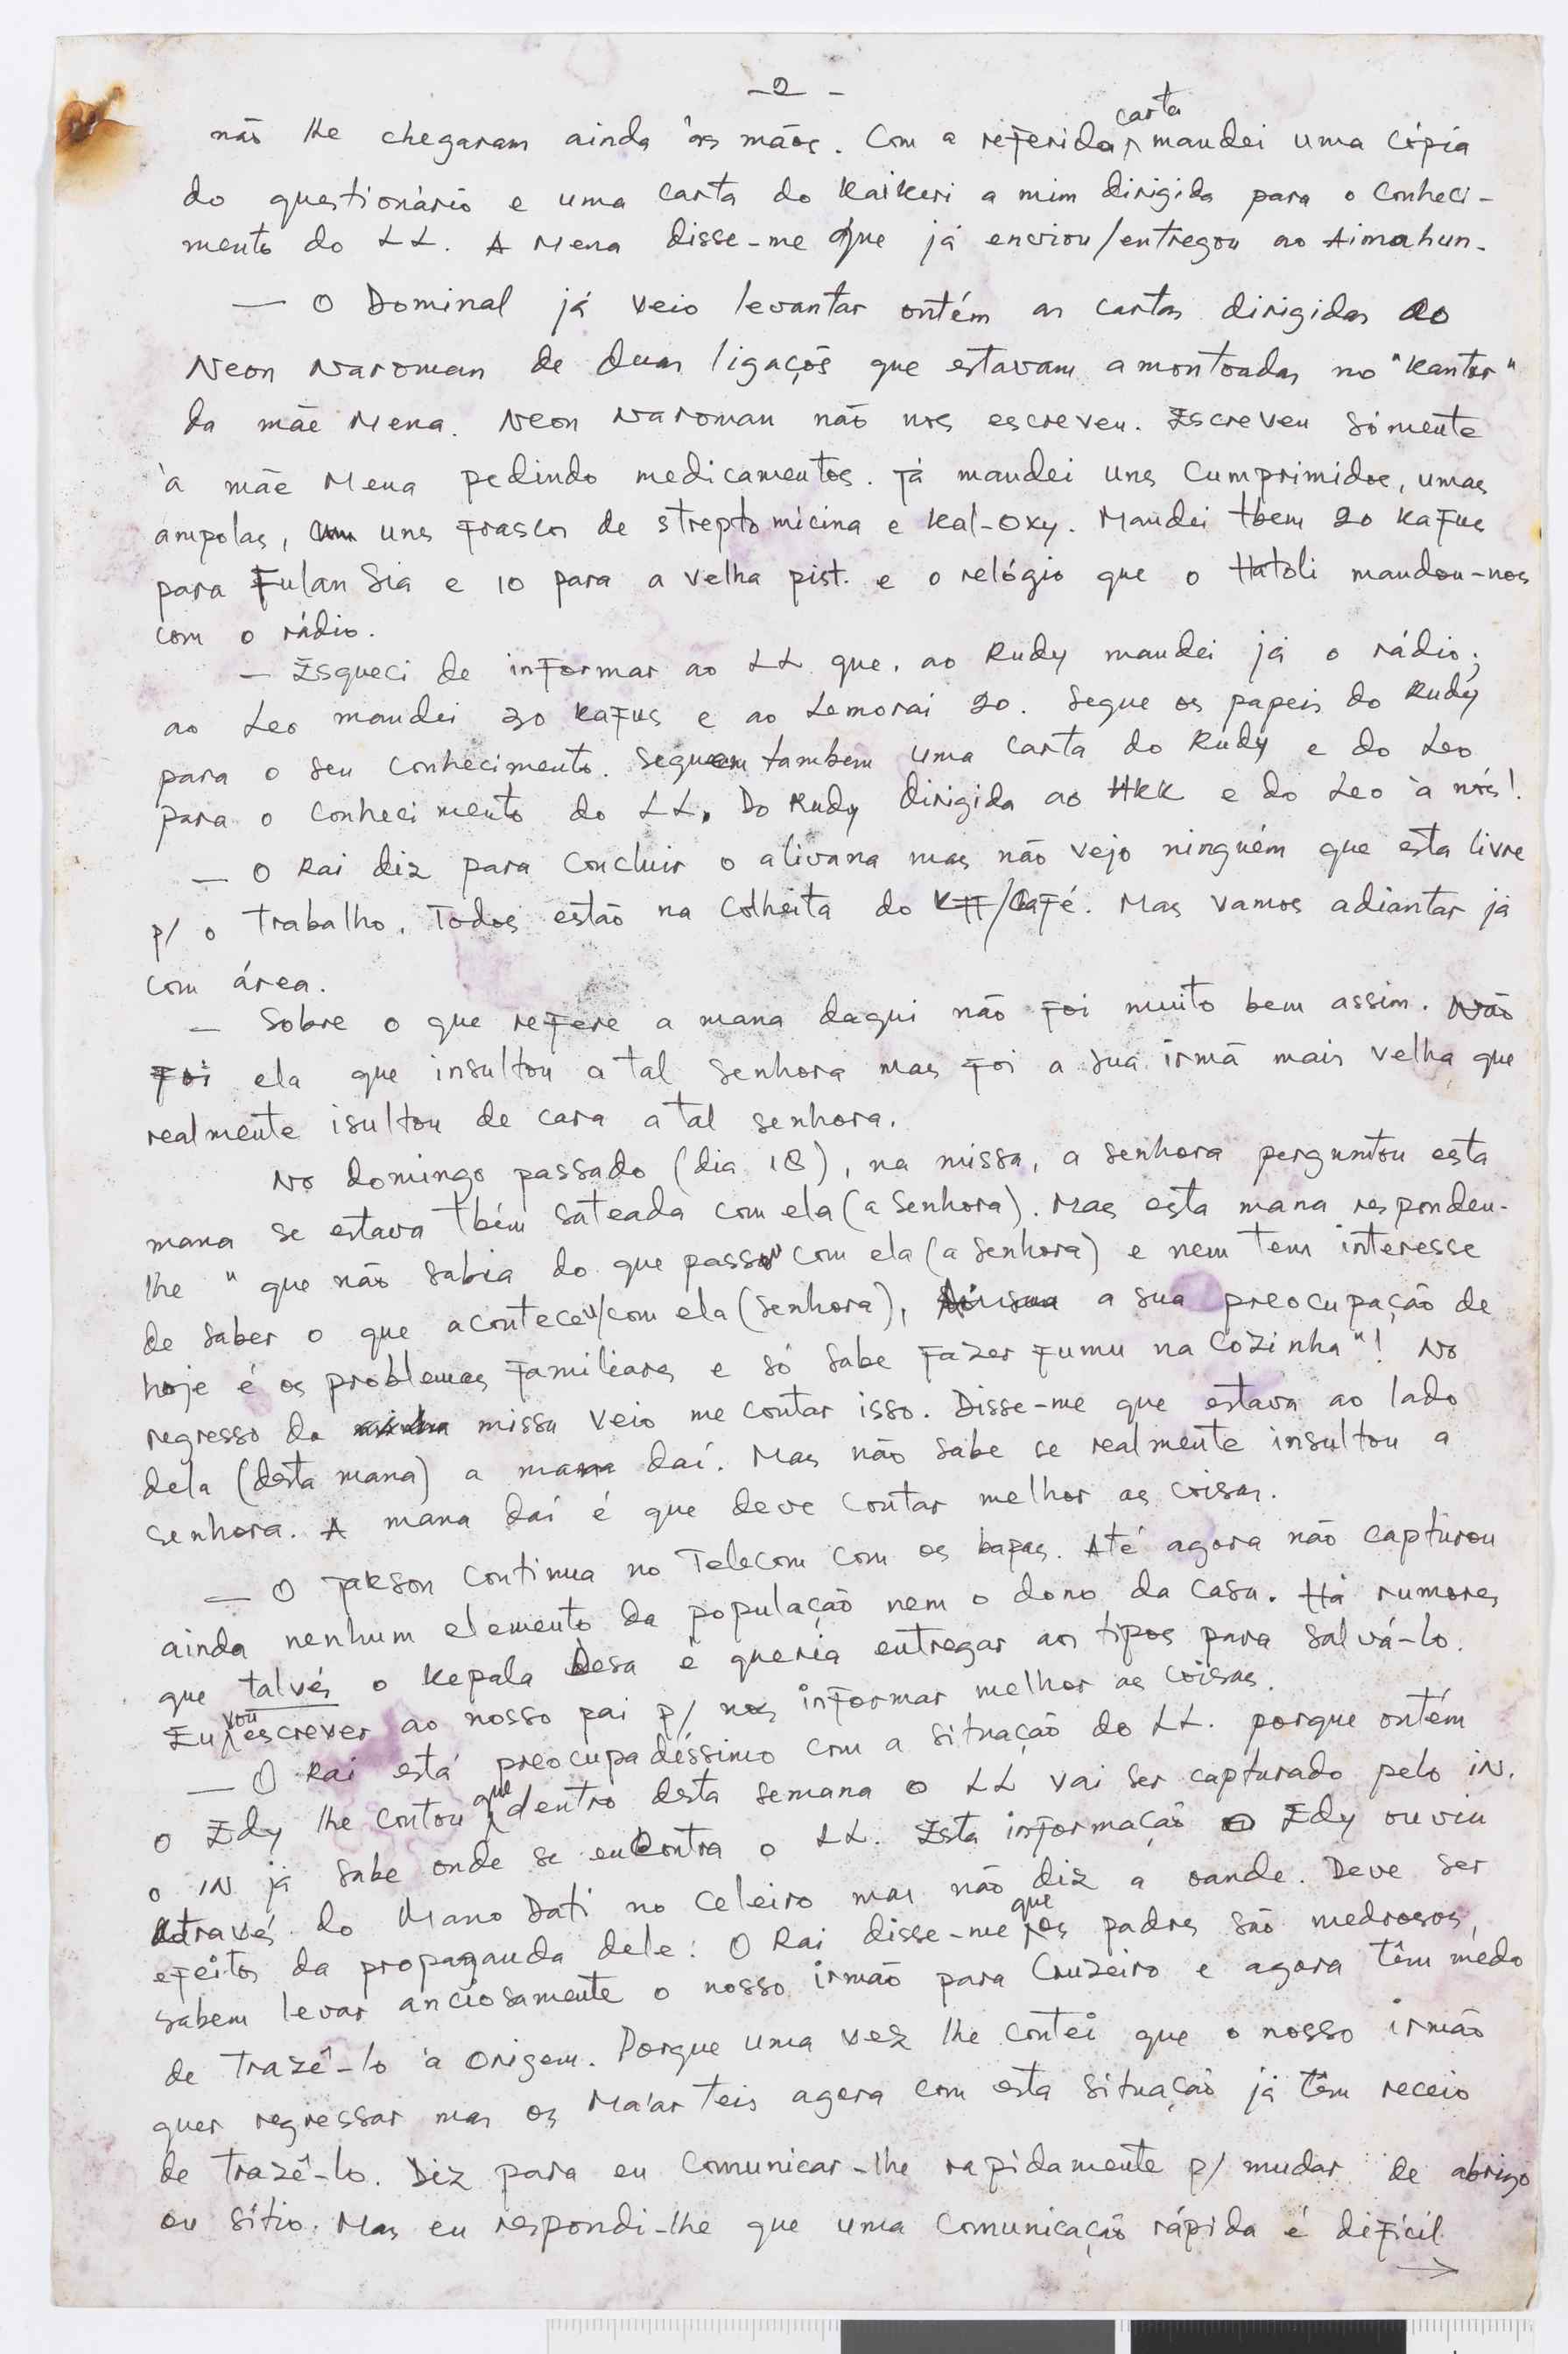 - 2 -
não lhe chegaram ainda às mãos. Com a referida carta mandei uma cópia
do questionário e uma carta do Kaikeri a mim dirigida para o conheci-
mento do LL. A Mena disse-me que já enviou/entregou ao Aimahun.
— O Dominal já veio levantar ontém as cartas dirigidas ao
Neon Naroman de duas ligaçõs que estavam amontoadas no "Kantor"
da mãe Mena. Neon Naroman não nos escreveu. Escreveu sómente
à mãe Mena pedindo medicamentos. Já mandei uns cumprimidos, umas
ampolas, uns frascos de streptomicina e Kal-Oxy. Mandei tbem 20 kafus
para Fulan Sia e 10 para a velha pist. e o relógio que o Hatoli mandou-nos
com o rádio.
— Esqueci de informar ao LL que, ao Rudy mandei já o rádio;
ao Leo mandei 30 kafus e ao Lemorai 20. Segue os papeis do Rudy
para o seu conhecimento. Seguem tambem uma carta do Rudy e do Leo
para o conhecimento do LL. Do Rudy dirigida ao HKK e do Leo à nós!
— O Rai diz para concluir o alivana mas não vejo ninguém que esta livre
p/ o trabalho. Todos estão na colheita do KFF/Café. Mas vamos adiantar já
com área.
— Sobre o que refere a mana daqui não foi muito bem assim. Não
foi ela que insultou a tal senhora mas foi a sua irmã mais velha que
realmente isultou de cara a tal senhora.
No domingo passado (dia 18), na missa, a senhora perguntou esta
mana se estava tbém sateada com ela (a senhora). Mas esta mana respondeu-
lhe "que não sabia do que passou com ela (a senhora) e nem tem interesse
de saber o que aconteceu/com ela (senhora), a sua preocupação de
hoje é os problemas familiares e só sabe fazer fumu na cozinha"! No
regresso da missa veio me contar isso. Disse-me que estava ao lado
dela (desta mana) a mana daí. Mas não sabe se realmente insultou a
senhora. A mana daí é que deve contar melhor as coisas.
— O Jakson continua no Telecom com os bapas. Até agora não capturou
ainda nenhum elemento da população nem o dono da casa. Há rumores
que talvés o Kepala Desa é queria entregar aos tipos para salvá-lo.
Eu vou escrever ao nosso pai p/ nos informar melhor as coisas.
— O Rai está preocupadéssimo com a situação do LL. porque ontém
o Edy lhe contou que dentro desta semana o LL vai ser capturado pelo iN.
o IN já sabe onde se encontra o LL. Esta informação o Edy ouviu
através do Mano Dati no celeiro mas não diz a oande. Deve ser
efeitos da propaganda dele. O Rai disse-me que os padres são medrosos,
sabem levar anciosamente o nosso irmão para Cruzeiro e agora têm médo
de trazê-lo à origem. Porque uma vez lhe contei que o nosso irmão
quer regressar mas os Ma'ar teis agora com esta situação já têm receio
de trazê-lo. Diz para eu comunicar-lhe rapidamente p/ mudar de abrigo
ou sítio. Mas eu respondi-lhe que uma comunicação rápida é difícil
→